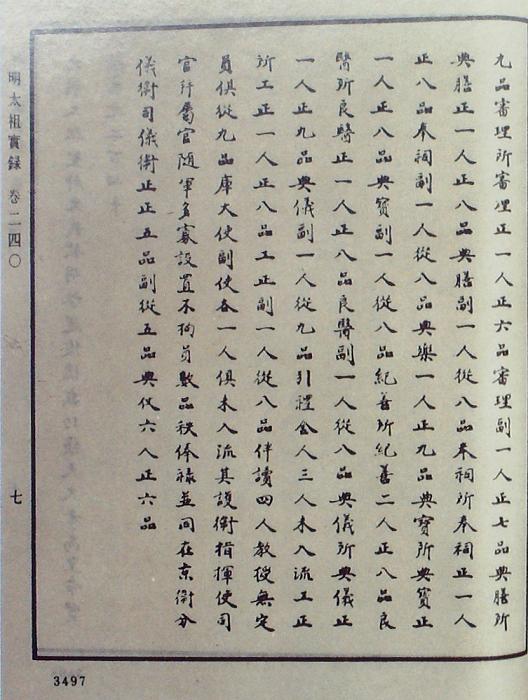 九品審理所審理正一人正六品審理副一人正七品典膳所
典膳正一人正八品典膳副一人從八品奉祠所奉祠正一人
正八品奉祠副一人從八品典樂一人正九品典寶所典寶正
一人正八品典寶副一人從八品紀善所紀善二人正八品良
醫所良醫正一人正八品良醫副一人從八品典儀所典儀正
一人正九品典儀副一人從九品引禮舍人三人未入流工正
所工正一人正八品工正副一人從八品伴讀四人教授無定
員俱從九品庫大使副使各一人俱未入流其護衛指揮使司
官行屬官隨軍多寡設置不拘員數品秩俸祿並同在京衛分
儀衛司儀衛正正五品副從五品典仗六人正六品
明太祖實錄 卷二四〇
七
3497